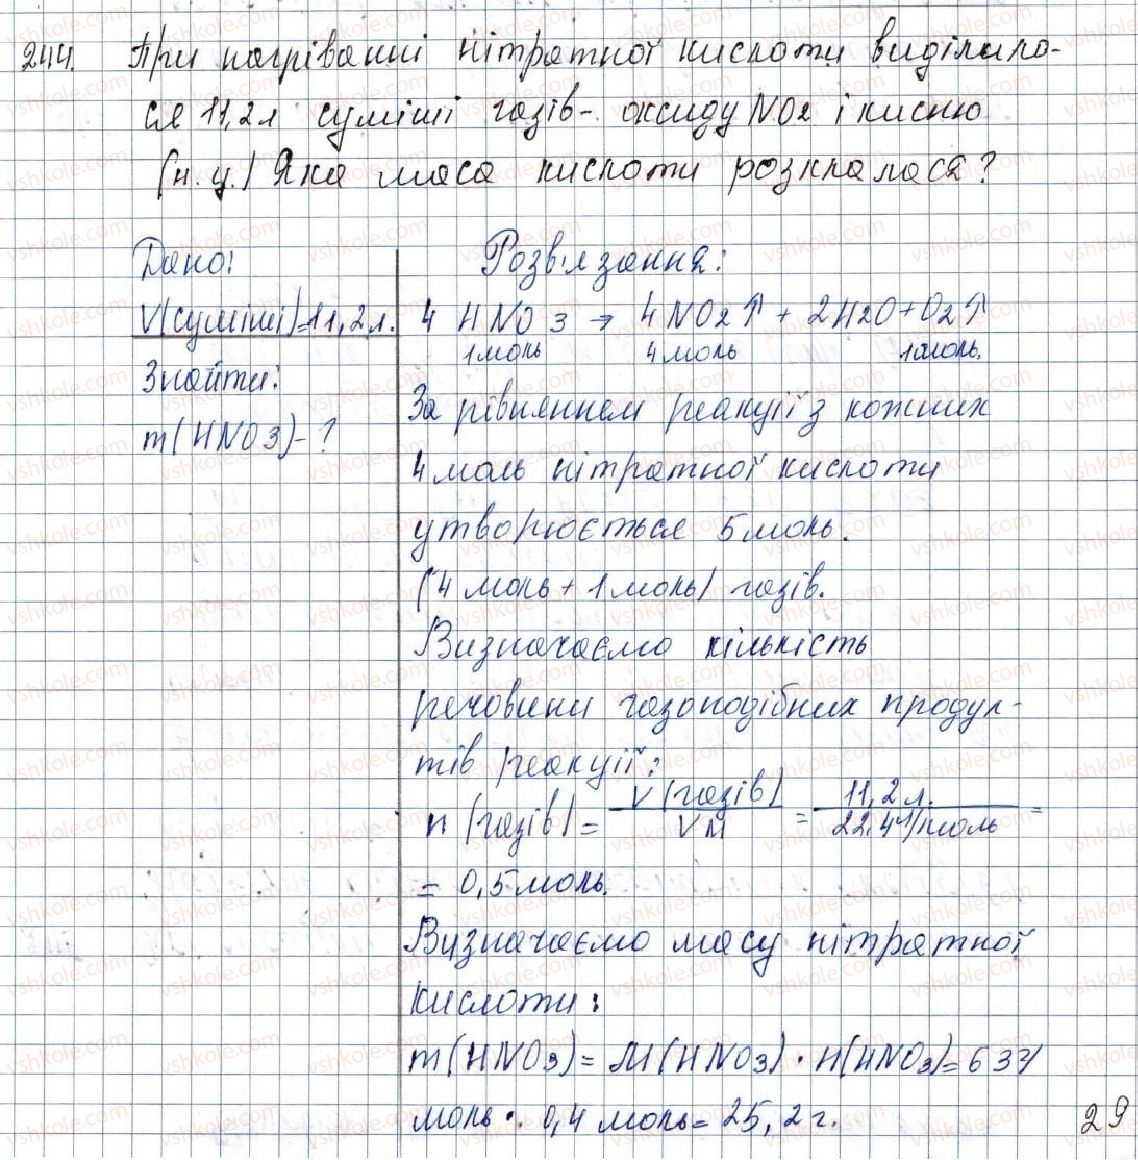 244. При нагріванні нітратної кислоти виділило-
ся 11,2л суміші газів- оксиду NO2 і кисню
(н.у.) Яка маса кислоти розклалася?
Дано:
V(суміші)=11,2л.
Знайти:
m(HNO3)-?
Розв'язання:
4 HNO3 → 4NO2↑ + 2H2O+O2↑
1моль 4моль 1моль.
За рівнянням реакції з кожних
4моль нітратної кислоти
утворюється 5моль.
(4 моль + 1 моль) газів.
Визначаємо кількість
речовини газоподібних продук-
тів реакції:
n(газів)= V(газів)/VM = 11,2л./22,4л/моль =
= 0,5моль.
Визначаємо масу нітратної
кислоти:
m(HNO3)= M(HNO3)·n(HNO3)=63г/
моль · 0,4 моль= 25,2г.
29
vshkole.com